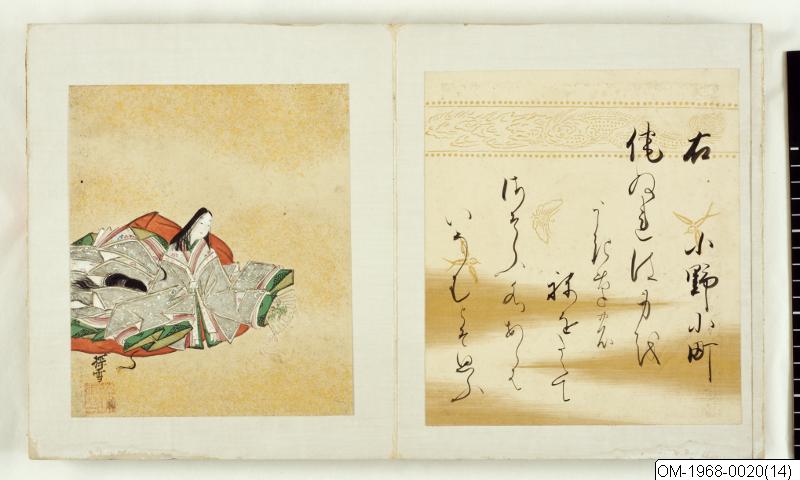 右 小野小町
侘ぬれは身を
うき草の
禰をたえて
さそふ水あらは
いなむとそ思ふ
探雪
OM-1968-0020(14)